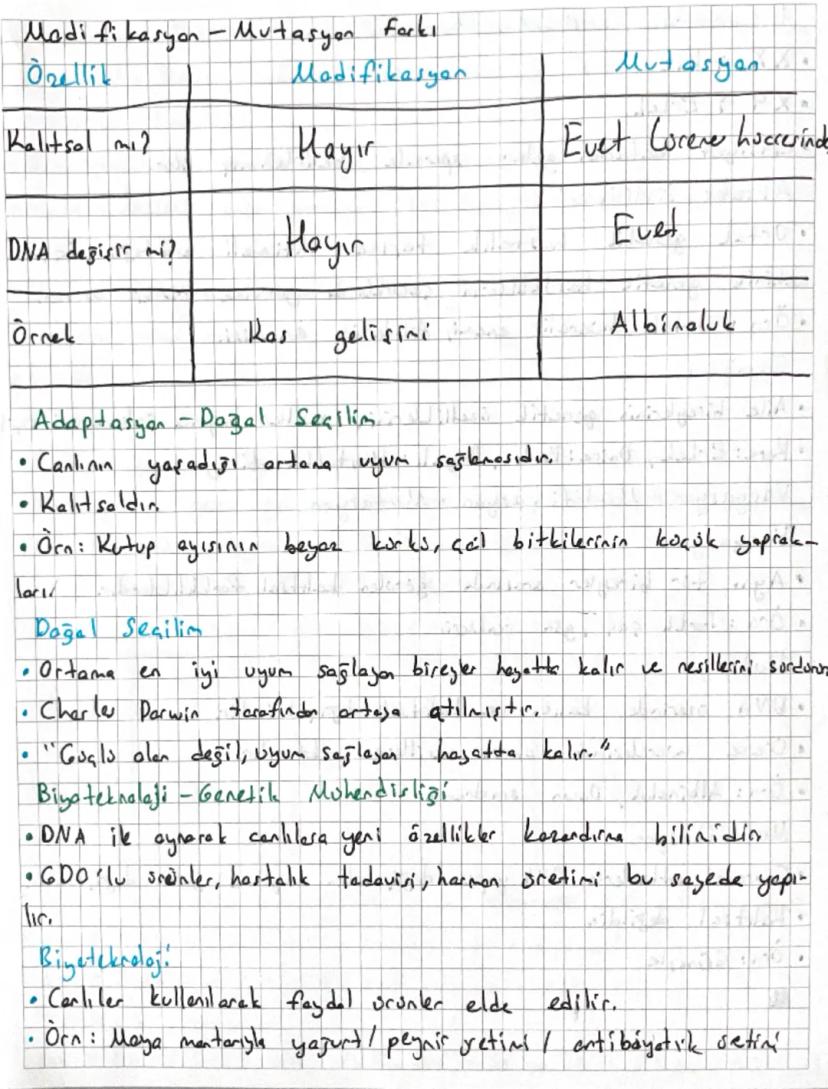 Modifikasyon - Mutasyon Farkı
Özellik Modifikasyon Mutasyon
Kalıtsal mı? Hayır Evet (üreme hücresinde
DNA değişir mi? Hayır Evet
Örnek Kas gelişimi Albinoluk
Adaptasyon - Doğal Seçilim
• Canlının yaşadığı ortama uyum sağlamasıdır.
• Kalıtsaldır.
• Örn: Kutup ayısının beyaz kürkü, çöl bitkilerinin küçük yaprak-
ları.
Doğal Seçilim
• Ortama en iyi uyum sağlayan bireyler hayatta kalır ve nesillerini sürdürür.
• Charles Darwin tarafından ortaya atılmıştır.
• "Güçlü olan değil, uyum sağlayan hayatta kalır."
Biyoteknoloji - Genetik Mühendisliği
• DNA ile oynarak canlılara yeni özellikler kazandırma bilimidir.
• GDO'lu ürünler, hastalık tedavisi, hormon üretimi bu sayede yapı-
lır.
Biyoteknoloji
• Canlılar kullanılarak faydalı ürünler elde edilir.
• Örn: Maya mantarıyla yoğurt / peynir üretimi / antibiyotik üretimi